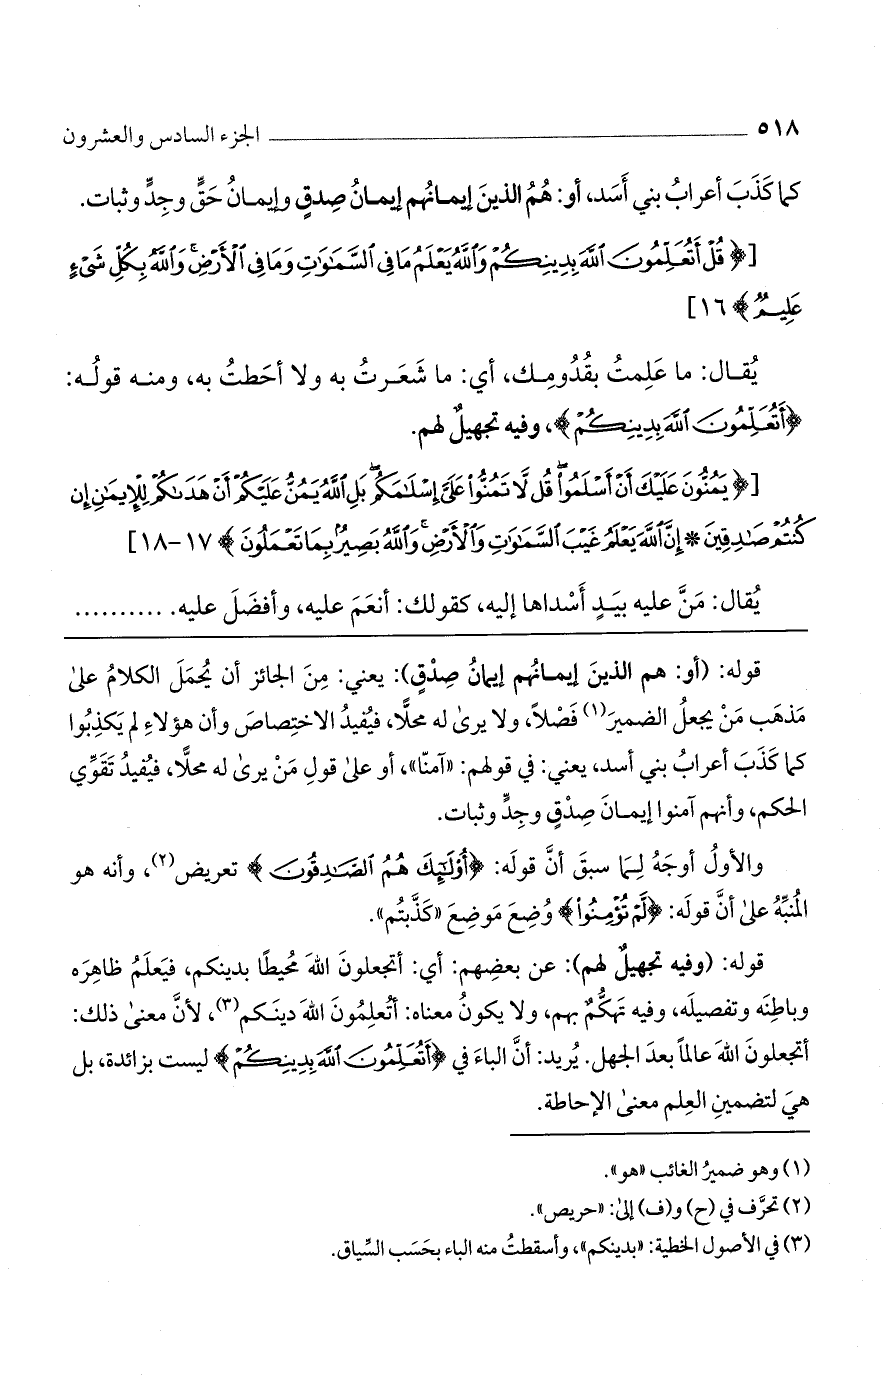 ٥١٨ ــــــــــــــــــــــــــــــ الجزء السادس والعشرون
كما كَذَبَ أعرابُ بني أَسَد، أو: هُمُ الذينَ إيمانُهم إيمانُ صِدقٍ وإيمانُ حَقٍّ وجِدٍّ وثبات.
[﴿قُلْ أَتُعَلِّمُونَ ٱللَّهَ بِدِينِكُمْ وَٱللَّهُ يَعْلَمُ مَا فِي ٱلسَّمَٰوَٰتِ وَمَا فِي ٱلْأَرْضِ ۚ وَٱللَّهُ بِكُلِّ شَىْءٍ
عَلِيمٌ﴾ ١٦]
يُقال: ما عَلِمتُ بقُدُومِك، أي: ما شَعَرتُ به ولا أحَطتُ به، ومنه قولُه:
﴿أَتُعَلِّمُونَ ٱللَّهَ بِدِينِكُمْ﴾، وفيه تجهيلٌ لهم.
[﴿يَمُنُّونَ عَلَيْكَ أَنْ أَسْلَمُوا۟ ۖ قُل لَّا تَمُنُّوا۟ عَلَىَّ إِسْلَٰمَكُم ۖ بَلِ ٱللَّهُ يَمُنُّ عَلَيْكُمْ أَنْ هَدَىٰكُمْ لِلْإِيمَٰنِ إِن
كُنتُمْ صَٰدِقِينَ * إِنَّ ٱللَّهَ يَعْلَمُ غَيْبَ ٱلسَّمَٰوَٰتِ وَٱلْأَرْضِ ۚ وَٱللَّهُ بَصِيرٌۢ بِمَا تَعْمَلُونَ﴾ ١٧-١٨]
يُقال: مَنَّ عليه بيَدٍ أَسْداها إليه، كقولك: أنعَمَ عليه، وأفضَلَ عليه. ..........
قوله: (أو: هم الذينَ إيمانُهم إيمانُ صِدْقٍ): يعني: مِنَ الجائز أن يُحمَلَ الكلامُ علىٰ
مَذهَب مَنْ يجعلُ الضميرَ(١) فَصْلاً، ولا يرىٰ له محلًّا، فيُفيدُ الاختِصاصَ وأن هؤلاءِ لم يَكذِبُوا
كما كَذَبَ أعرابُ بني أسد، يعني: في قولهم: «آمنّا»، أو علىٰ قولِ مَنْ يرىٰ له محلًّا، فيُفيدُ تَقَوِّي
الحكم، وأنهم آمنوا إيمانَ صِدْقٍ وجِدٍّ وثبات.
والأولُ أوجَهُ لِمَا سبقَ أنَّ قولَه: ﴿أُو۟لَٰٓئِكَ هُمُ ٱلصَّٰدِقُونَ﴾ تعريض(٢)، وأنه هو
المُنبِّهُ علىٰ أنَّ قولَه: ﴿لَّمْ تُؤْمِنُوا۟﴾ وُضِعَ مَوضِعَ «كَذَّبتُم».
قوله: (وفيه تجهيلٌ لهم): عن بعضِهم: أي: أتجعلونَ اللهَ مُحيطًا بدينكم، فيَعلَمُ ظاهِرَه
وباطِنَه وتفصيلَه، وفيه تَهكُّمٌ بهم، ولا يكونُ معناه: أتُعلِمُونَ اللهَ دينَكم(٣)، لأنَّ معنىٰ ذلك:
أتجعلونَ اللهَ عالماً بعدَ الجهل. يُريد: أنَّ الباءَ في ﴿أَتُعَلِّمُونَ ٱللَّهَ بِدِينِكُمْ﴾ ليست بزائدة، بل
هيَ لتضمينِ العِلم معنىٰ الإحاطة.
(١) وهو ضميرُ الغائب «هو».
(٢) تحرَّف في (ح) و(ف) إلىٰ: «حريص».
(٣) في الأصول الخطية: «بدينكم»، وأسقطتُ منه الباء بحَسَب السِّياق.